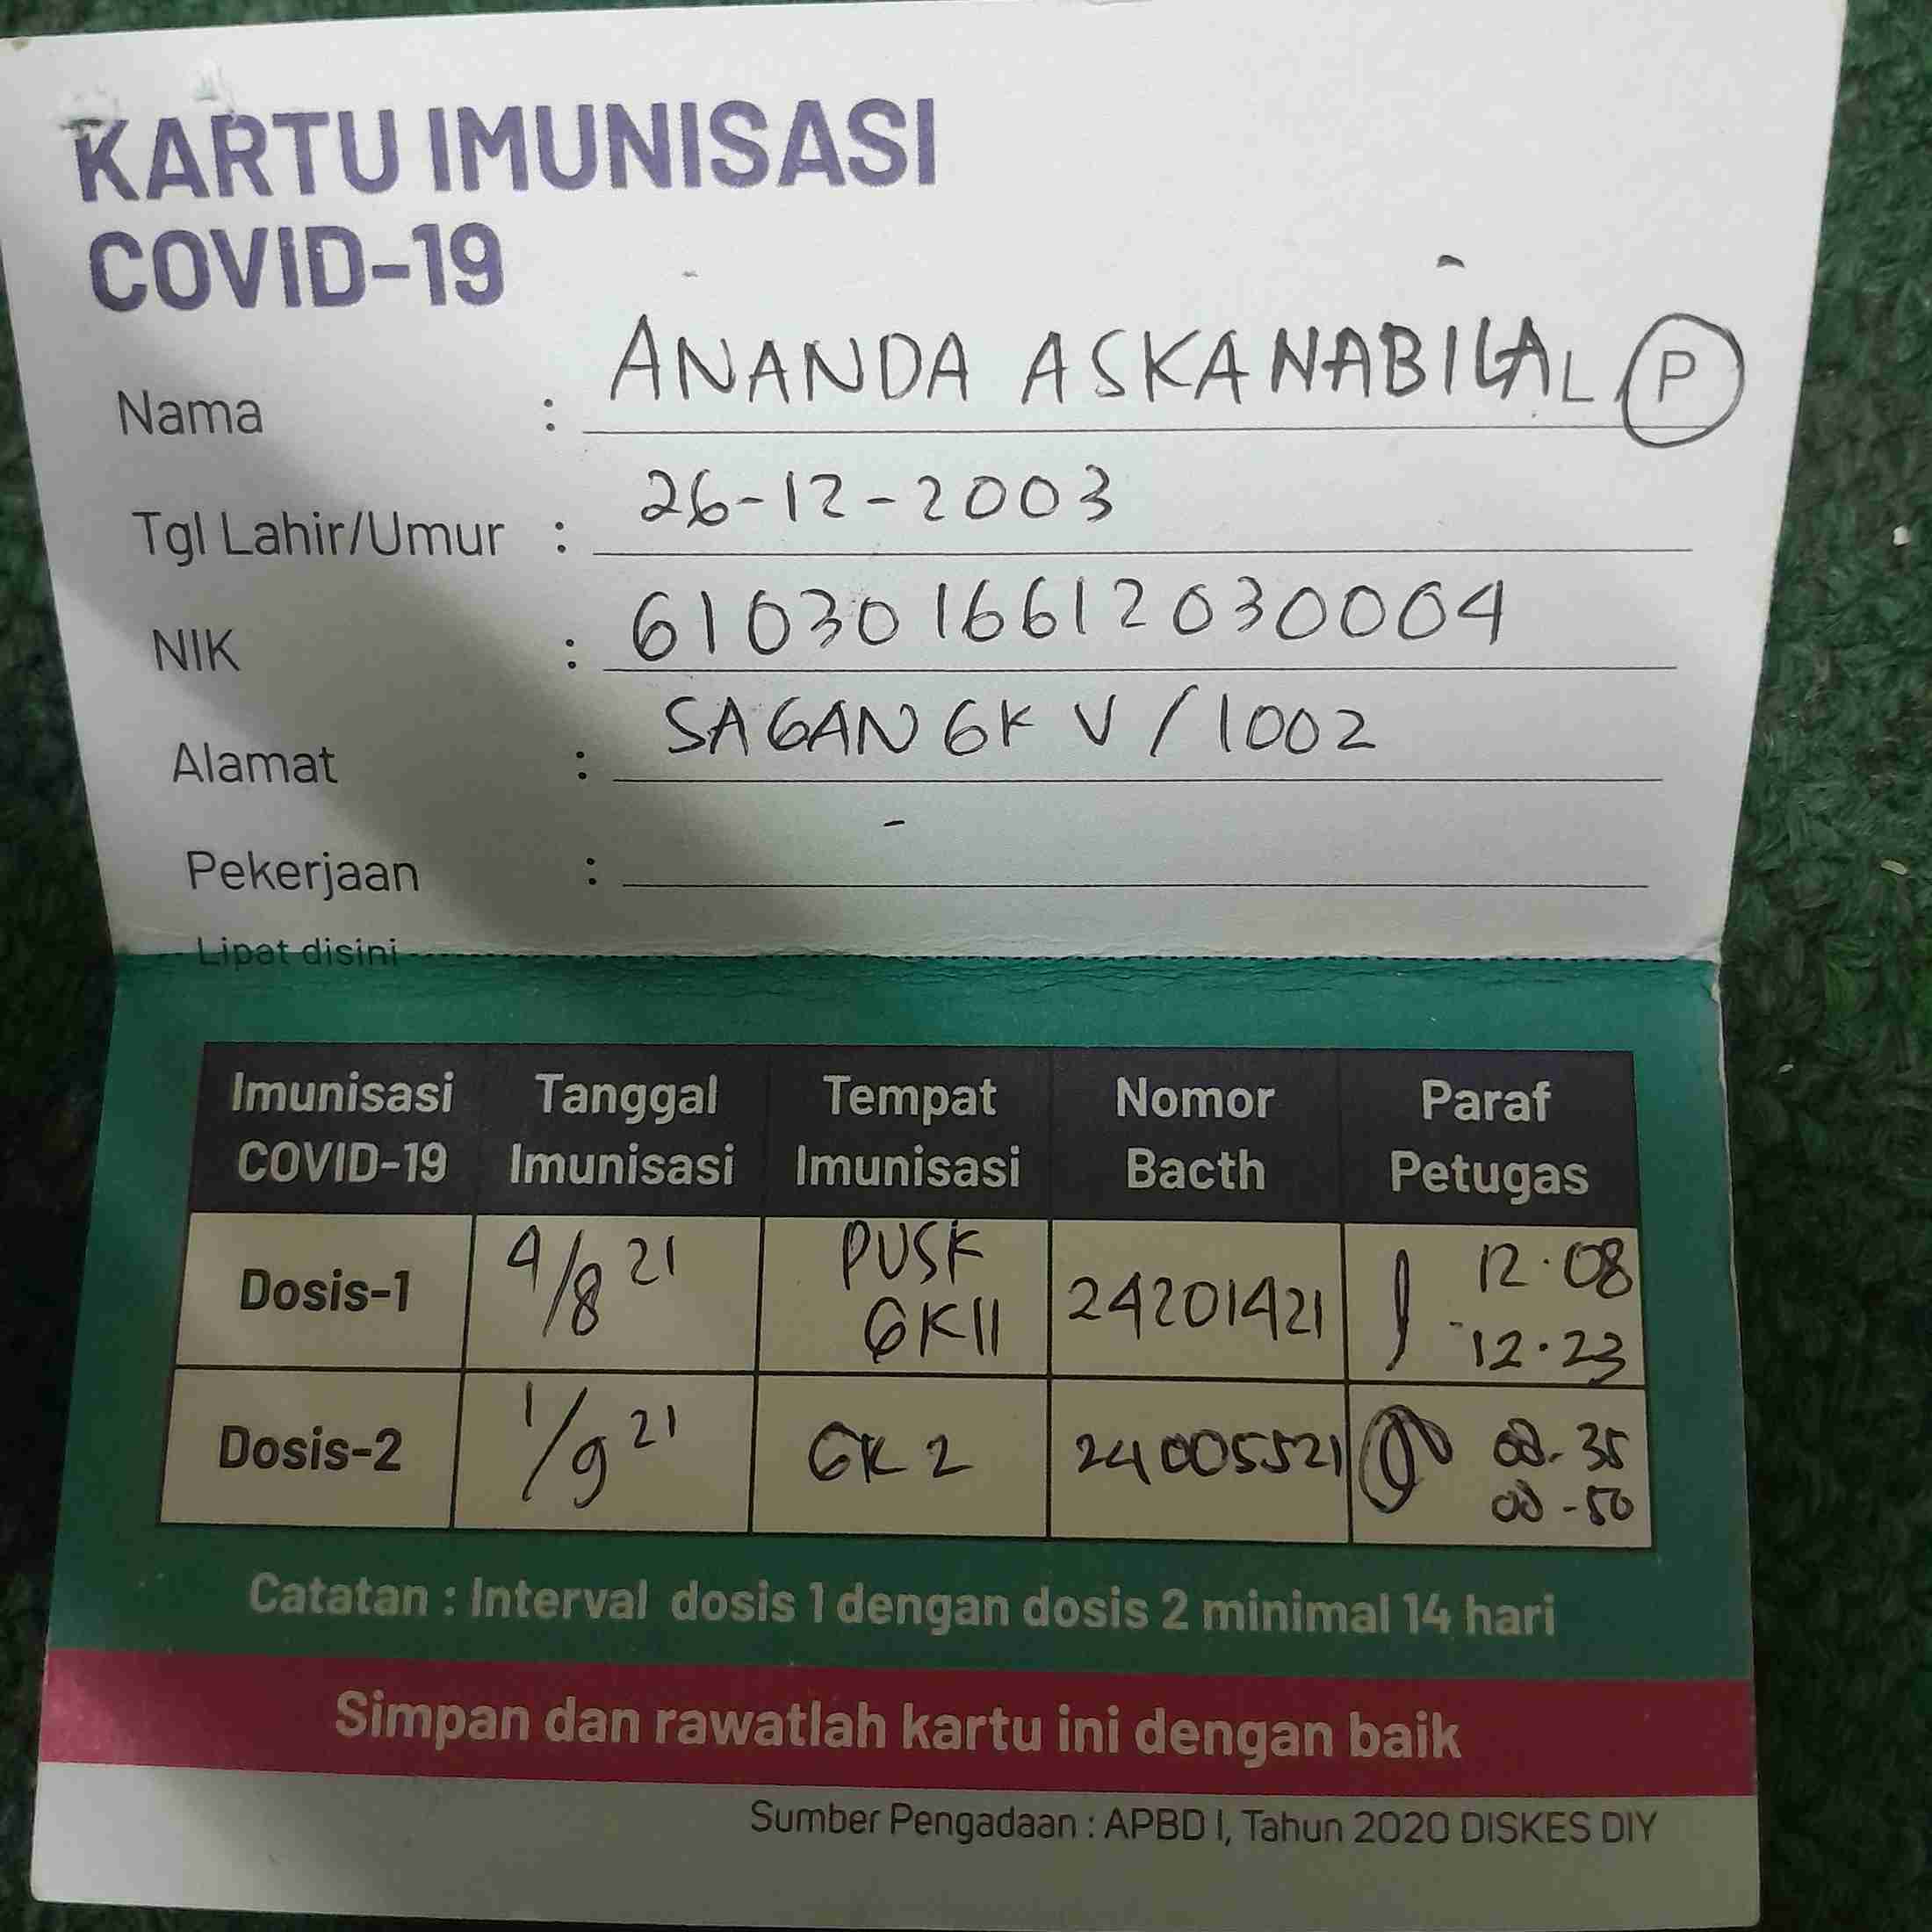 KARTU IMUNISASI
COVID-19
Nama : ANANDA ASKA NABILA L P
Tgl Lahir/Umur : 26-12-2003
NIK : 6103016612030004
Alamat : SAGAN GK V / 1002
Pekerjaan : -
Lipat disini
Imunisasi COVID-19 Tanggal Imunisasi Tempat Imunisasi Nomor Bacth Paraf Petugas
Dosis-1 4/8 21 PUSK GK II 24201421 12.08 12.23
Dosis-2 1/9 21 GK 2 24005521 08.35 08-50
Catatan : Interval dosis 1 dengan dosis 2 minimal 14 hari
Simpan dan rawatlah kartu ini dengan baik
Sumber Pengadaan : APBD I, Tahun 2020 DISKES DIY